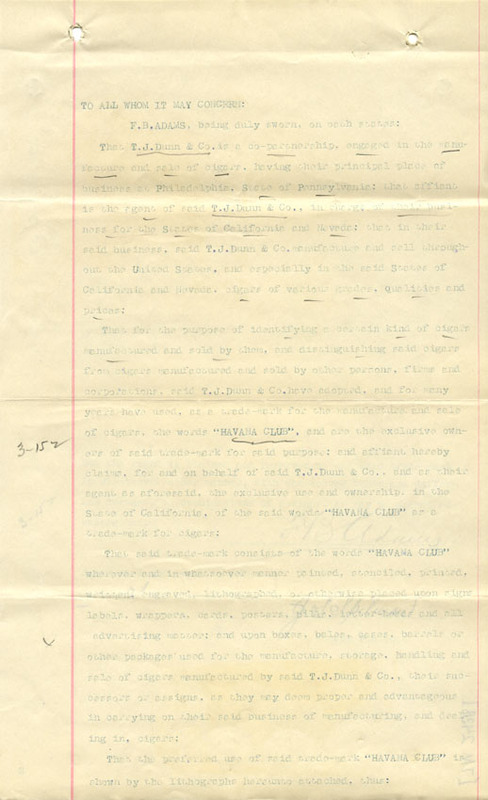 TO ALL WHOM IT MAY CONCERN:
F.B.ADAMS, being duly sworn, on oath states:
That T.J.Dunn & Co.is a co-partnership, engaged in the manu-
facture and sale of cigars, having their principal place of
business at Philadelphia, State of Pennsylvania; that affiant
is the agent of said T.J.Dunn & Co., in charge of their busi-
ness for the States of California and Nevada; that in their
said business, said T.J.Dunn & Co.manufacture and sell through-
out the United States, and especially in the said States of
California and Nevada, cigars of various grades, qualities and
prices;
That for the purpose of identifying a certain kind of cigars
manufactured and sold by them, and distinguishing said cigars
from cigars manufactured and sold by other persons, firms and
corporations, said T.J.Dunn & Co.have adopted, and for many
years have used, as a trade-mark for the manufacture and sale
of cigars, the words "HAVANA CLUB", and are the exclusive own-
3-152
ers of said trade-mark for said purpose; and affiant hereby
claims, for and on behalf of said T.J.Dunn & Co., and as their
agent as aforesaid, the exclusive use and ownership, in the
State of California, of the said words "HAVANA CLUB" as a
trade-mark for cigars;
That said trade-mark consists of the words "HAVANA CLUB"
wherever and in whatsoever manner painted, stenciled, printed,
written, engraved, lithographed, or otherwise placed upon signs
labels, wrappers, cards, posters, bills, letter-heads and all
advertising matter; and upon boxes, bales, cases, barrels or
other packages used for the manufacture, storage, handling and
sale of cigars manufactured by said T.J.Dunn & Co., their suc-
cessors or assigns, as they may deem proper and advantageous
in carrying on their said business of manufacturing, and deal-
ing in, cigars;
That the preferred use of said trade-mark "HAVANA CLUB" is
shown by the lithographs hereunto attached, thus: